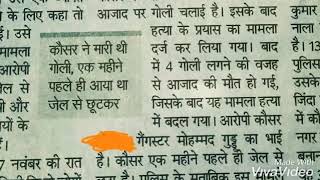 से एक विवाद
के लिए कहा तो
। उसे
मामला
आरोपी
जेल
पी और
यों के
है।
7 नवंबर की रात
कौसर ने मारी थी
गोली, एक महीने
पहले ही आया था
जेल से छूटकर
आजाद पर गोली चलाई है। इसके बाद
हत्या के प्रयास का मामला
दर्ज कर लिया गया। बाद
में 4 गोली लगने की वजह
से आजाद की मौत हो गई,
जिसके बाद यह मामला हत्या
में बदल गया। आरोपी कौसर
गैंगस्टर मोहम्मद गुड्डू का भाई
है। कौसर एक महीने पहले ही जेल से
कुमार
नाला
है। 13
पुलिस
उसके
जिंदा
में क
नगर
Made With
VivaVideo